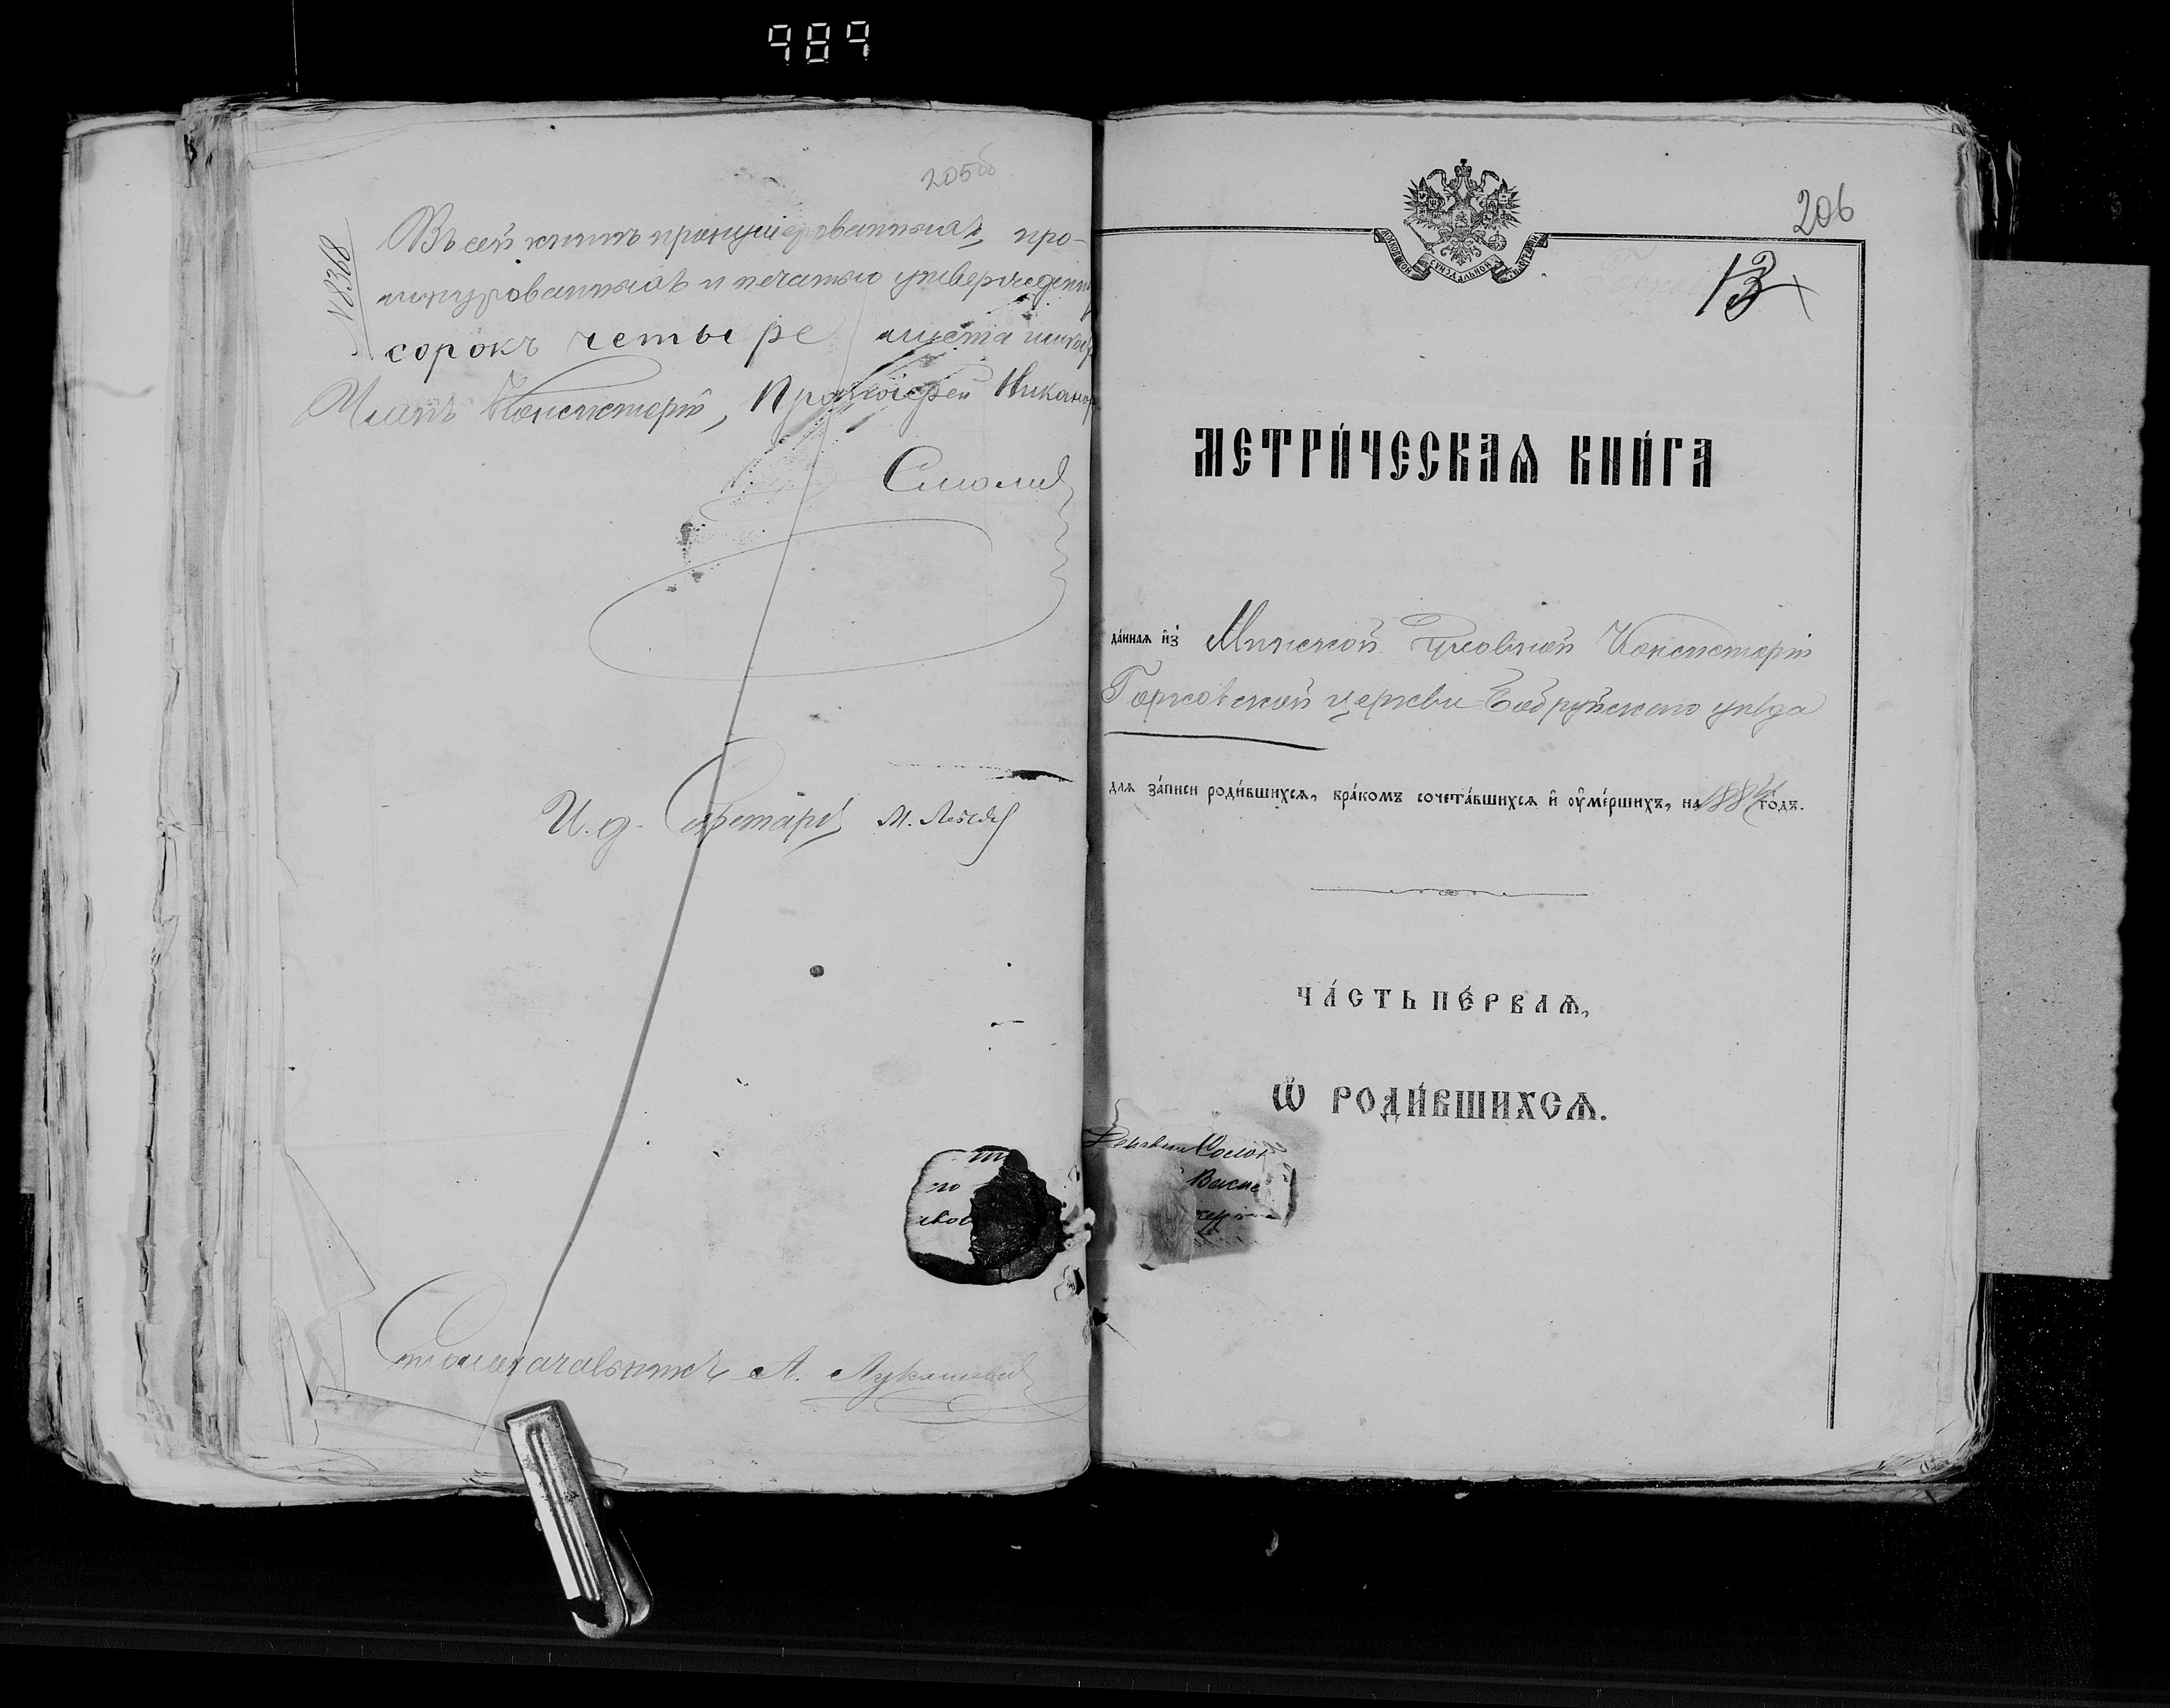 989
205об
№ 8368
Въ сей книгѣ пронумерованныхъ, про-
шнурованныхъ и печатью утвержденн
сорокъ четыре листа
Членъ Консисторіи, Протоіерей Никанор
Смолич
И. д. Секретаря
Столоначальникъ А. Лукашевич
206
13
МЕТРИ́ЧЕСКАѦ КНИ́ГА
да́ннаѧ и҆з̾ Минской Духовной Консисторіи
Горковской церкви Бобруйскаго уѣзда
для за́писи роди́вшихсѧ, бра́комъ сочета́вшихсѧ и҆ оу҆ме́ршихъ, на 188 го́дъ.
ЧА́СТЬ ПЕ́РВАѦ,
Ѡ҆ РОДИ́ВШИХСѦ.